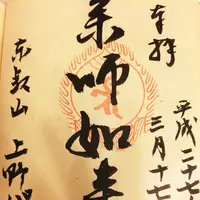 奉拝
平成二十七
三月十七
薬師如来
東叡山 上野